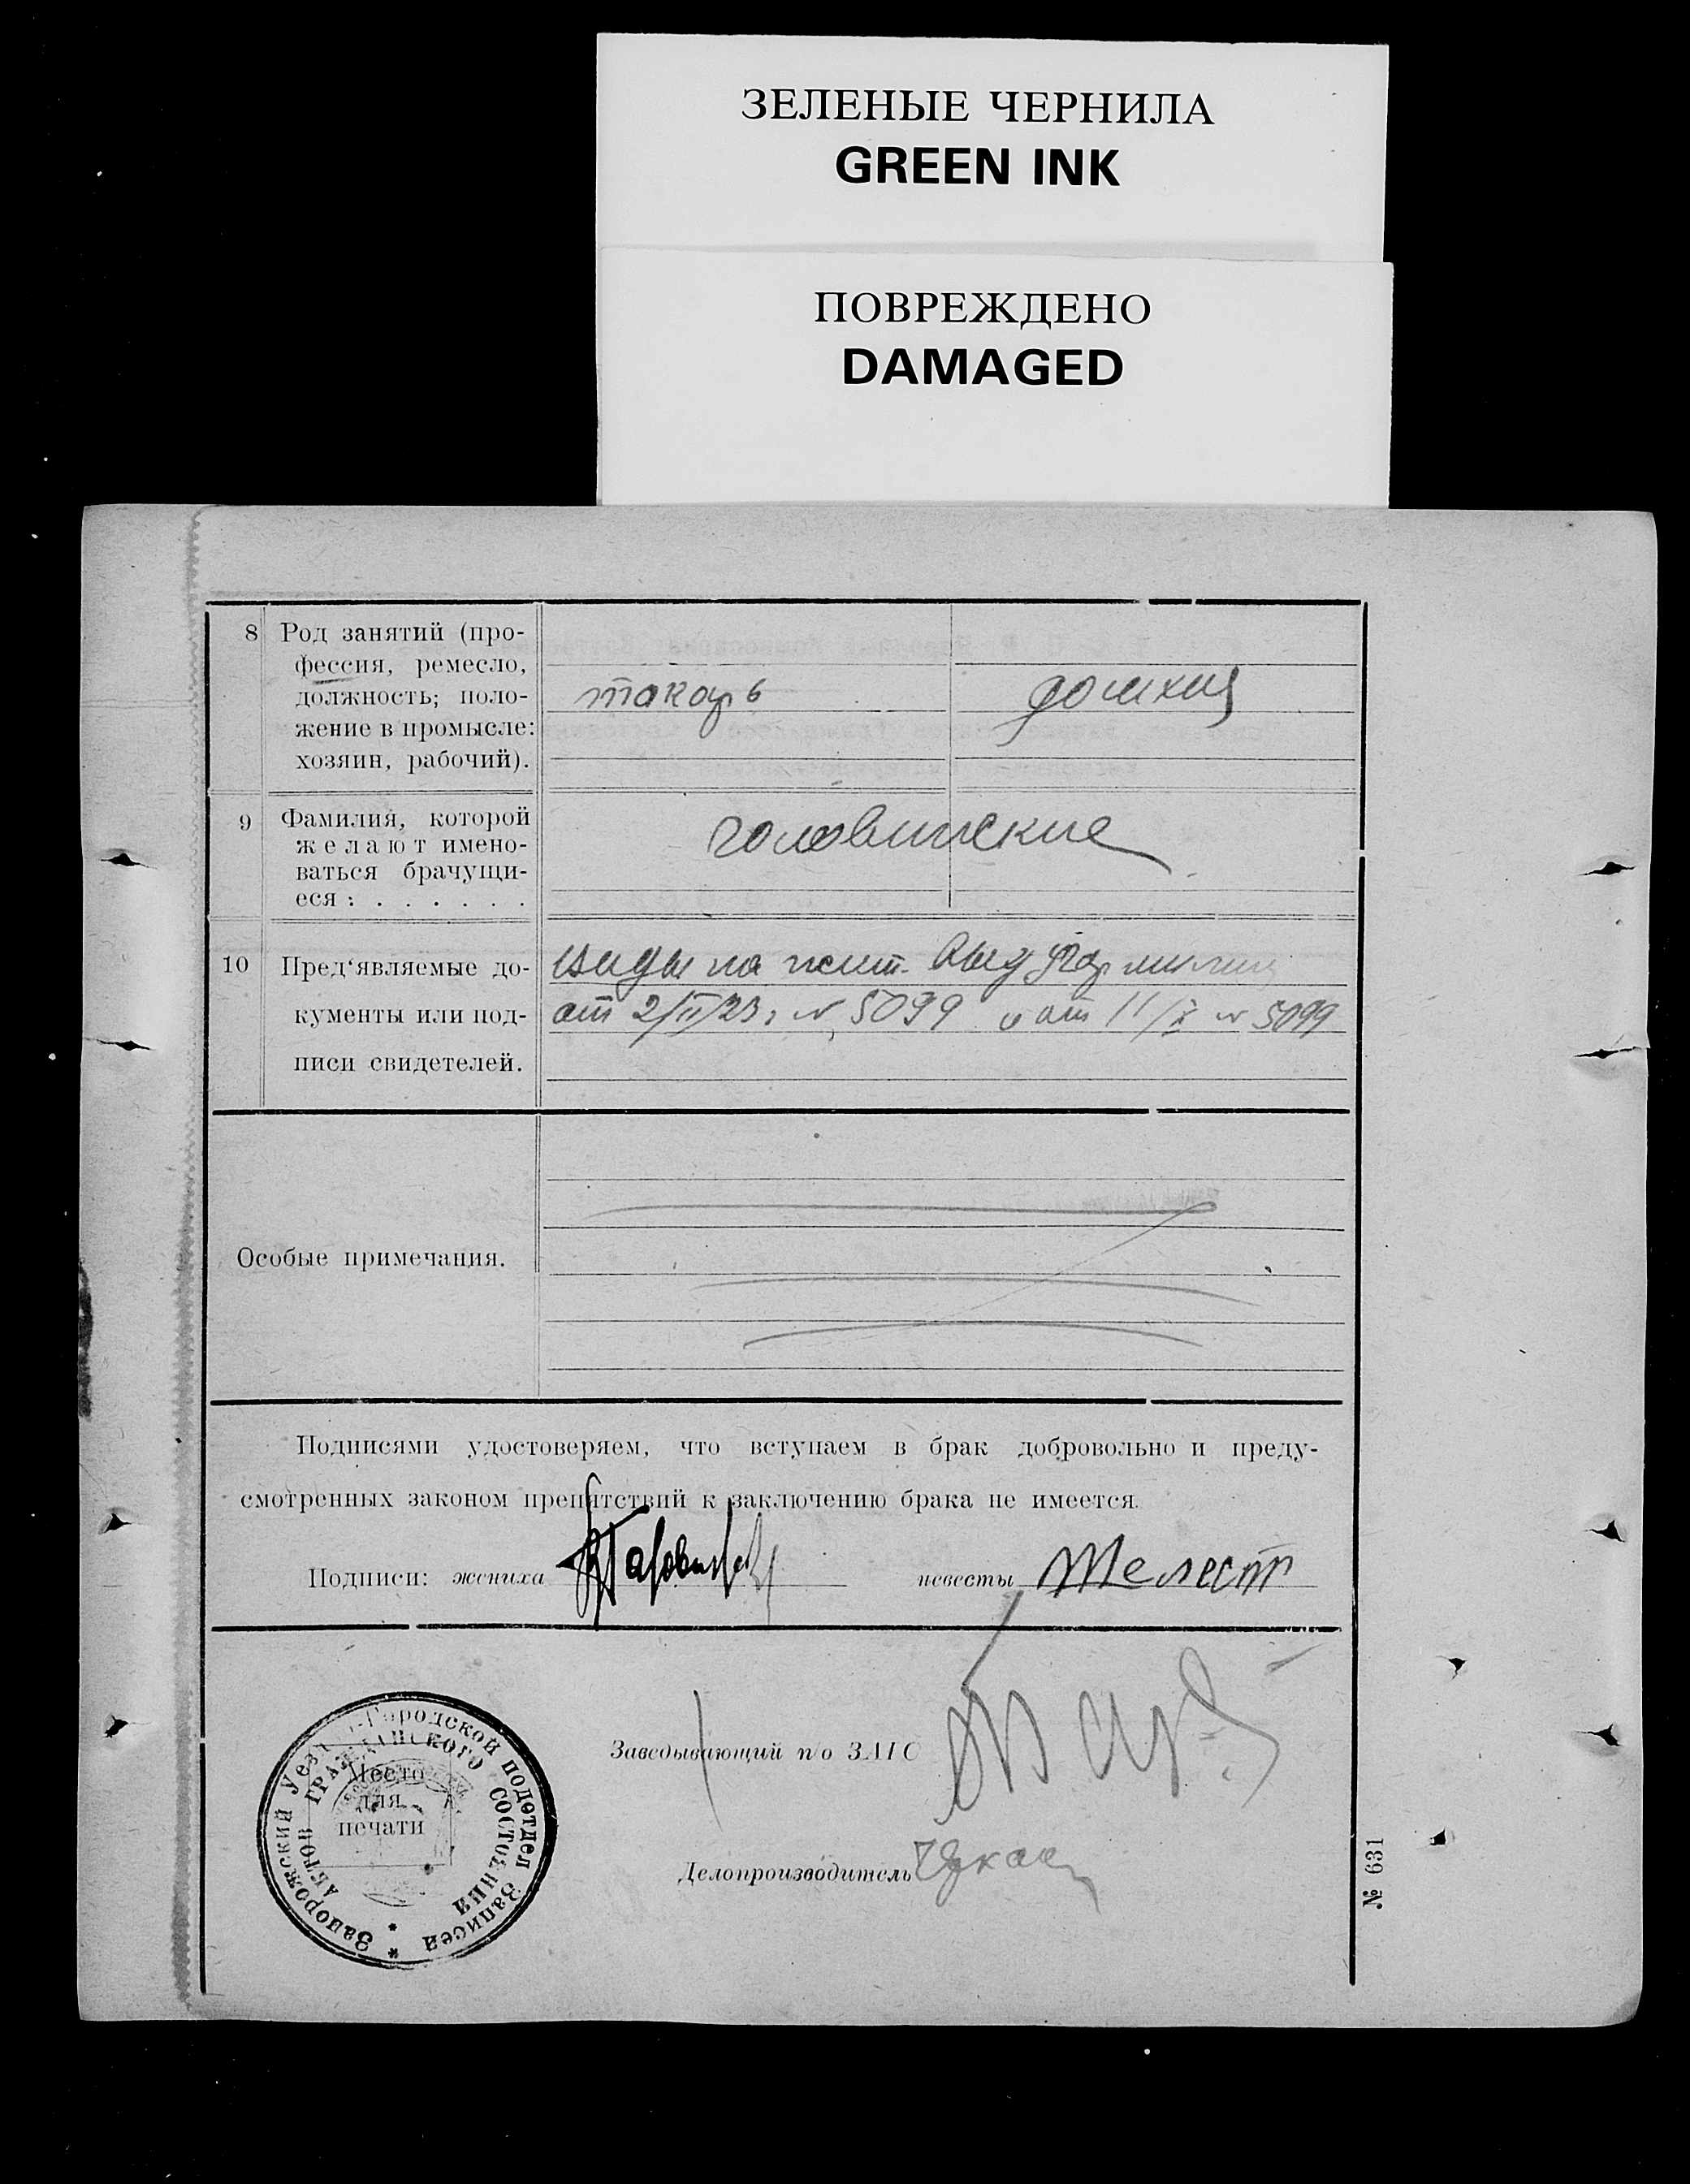 ЗЕЛЕНЫЕ ЧЕРНИЛА
GREEN INK
ПОВРЕЖДЕНО
DAMAGED
8 Род занятий (про-
фессия, ремесло,
должность; поло-
жение в промысле:
хозяин, рабочий).
токарь домхоз
9 Фамилия, которой
желают имено-
ваться брачущи-
еся : . . . . . . .
Головинские
10 Пред‘являемые до-
кументы или под-
писи свидетелей.
Виды на жит. выд
от 2/II/23 г № 5099 и от 11/X № 5099
Особые примечания.
Подписями удостоверяем, что вступаем в брак добровольно и преду-
смотренных законом препятствий к заключению брака не имеется.
Подписи: жениха невесты Шелест
Заведывающий п/о ЗАГС
Делопроизводитель
Место
для
печати
Запорожский Уезд Городской подотдел Записей
АКТОВ ГРАЖДАНСКОГО СОСТОЯНИЯ
№ 631